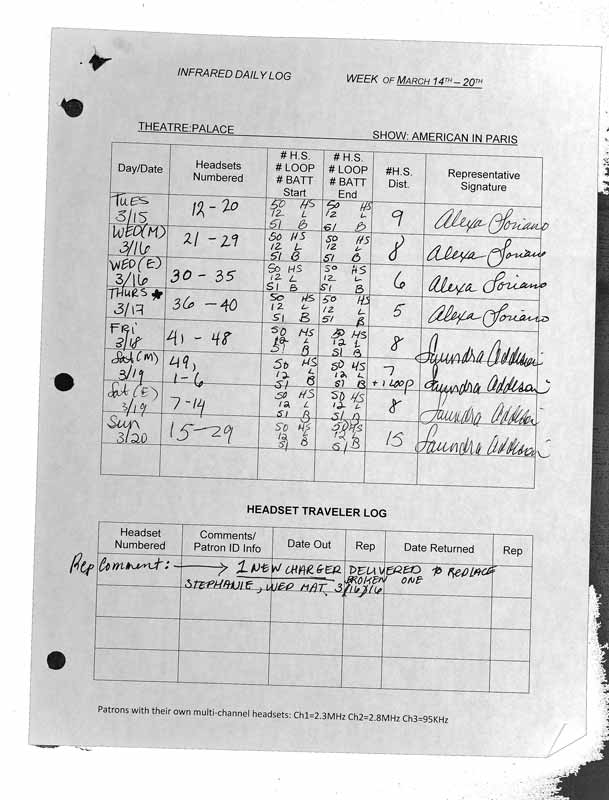 INFRARED DAILY LOG WEEK OF MARCH 14TH – 20TH
THEATRE:PALACE SHOW: AMERICAN IN PARIS
Day/Date Headsets Numbered # H.S. # LOOP # BATT Start # H.S. # LOOP # BATT End #H.S. Dist. Representative Signature
TUES 3/15 12 - 20 50 HS 12 L 51 B 50 HS 12 L 51 B 9 Alexa Soriano
WED(M) 3/16 21 - 29 50 HS 12 L 51 B 50 HS 12 L 51 B 8 Alexa Soriano
WED(E) 3/16 30 - 35 50 HS 12 L 51 B 50 HS 12 L 51 B 6 Alexa Soriano
THURS ★ 3/17 36 - 40 50 HS 12 L 51 B 50 HS 12 L 51 B 5 Alexa Soriano
FRI 3/18 41 - 48 50 HS 12 L 51 B 50 HS 12 L 51 B 8 Saundra Addison
Sat(M) 3/19 49, 1-6 50 HS 12 L 51 B 50 HS 12 L 51 B 7 +1 LOOP Saundra Addison
Sat(E) 3/19 7-14 50 HS 12 L 51 B 50 HS 12 L 51 B 8 Saundra Addison
Sun 3/20 15-29 50 HS 12 L 51 B 50 HS 12 L 51 B 15 Saundra Addison
HEADSET TRAVELER LOG
Headset Numbered Comments/ Patron ID Info Date Out Rep Date Returned Rep
Rep Comment: → 1 NEW CHARGER DELIVERED to REPLACE
BROKEN ONE
STEPHANIE, WED MAT. 3/16/16
Patrons with their own multi-channel headsets: Ch1=2.3MHz Ch2=2.8MHz Ch3=95KHz